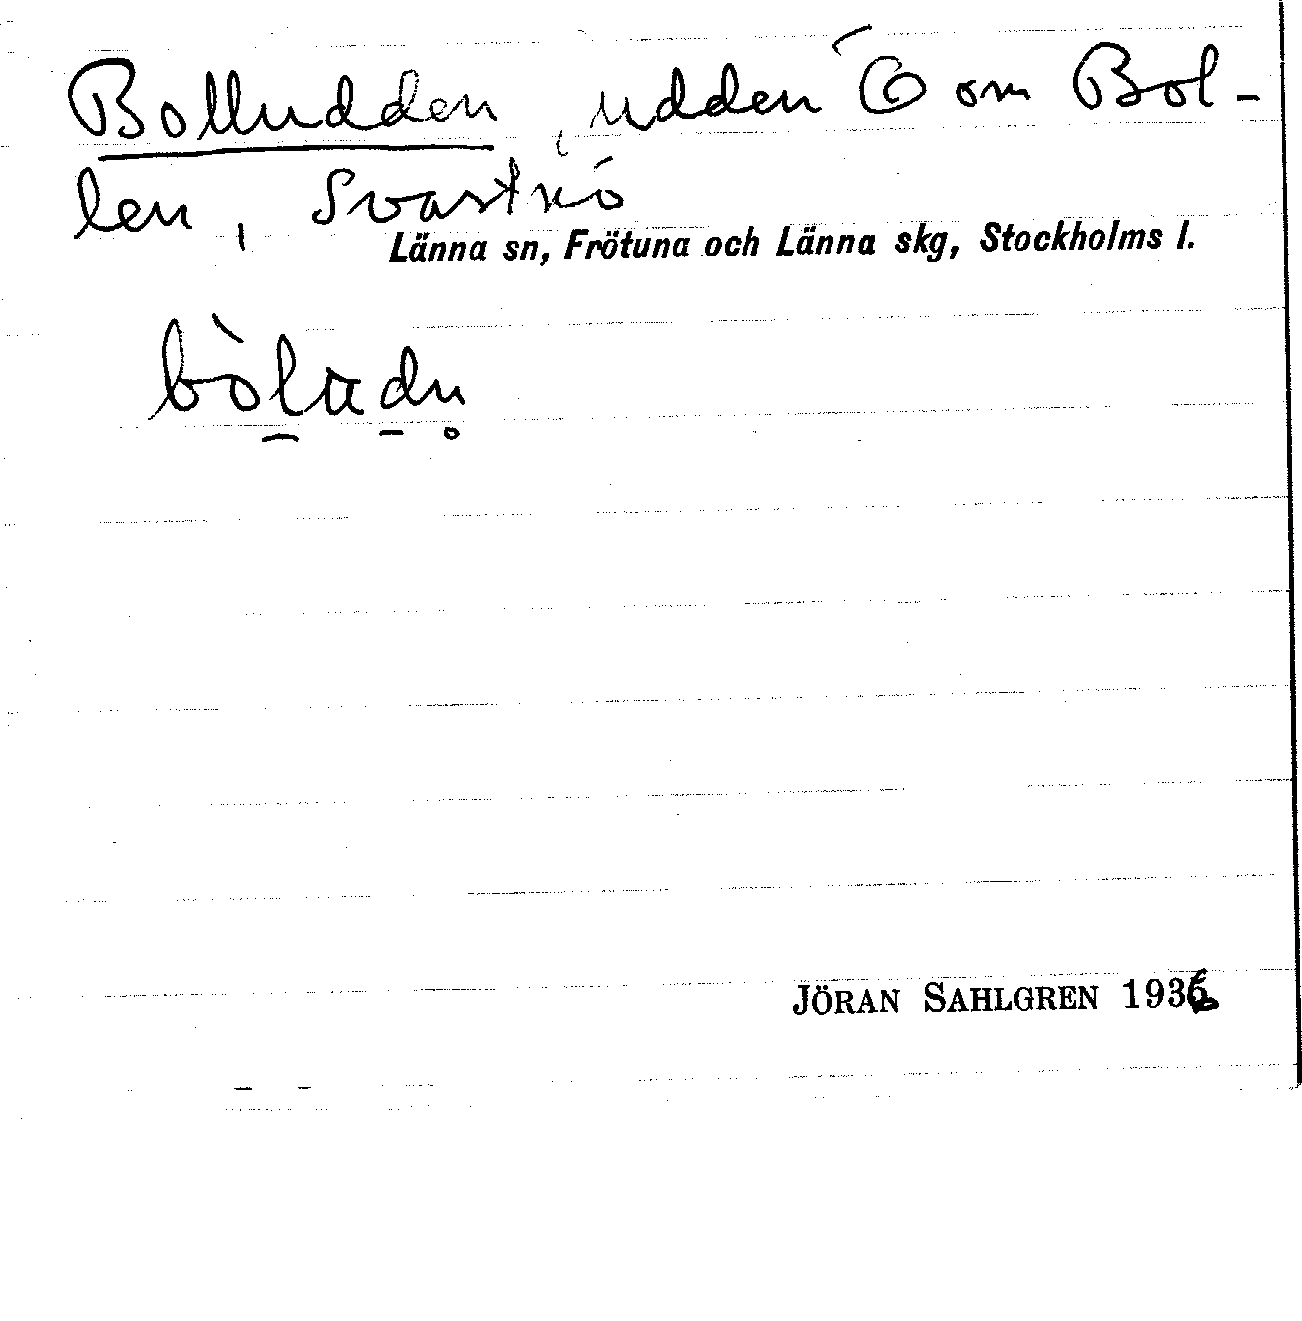 Bolludden, udden Ö om Bol-
len, Svartnö
Länna sn, Frötuna och Länna skg, Stockholms l.
JÖRAN SAHLGREN 1936